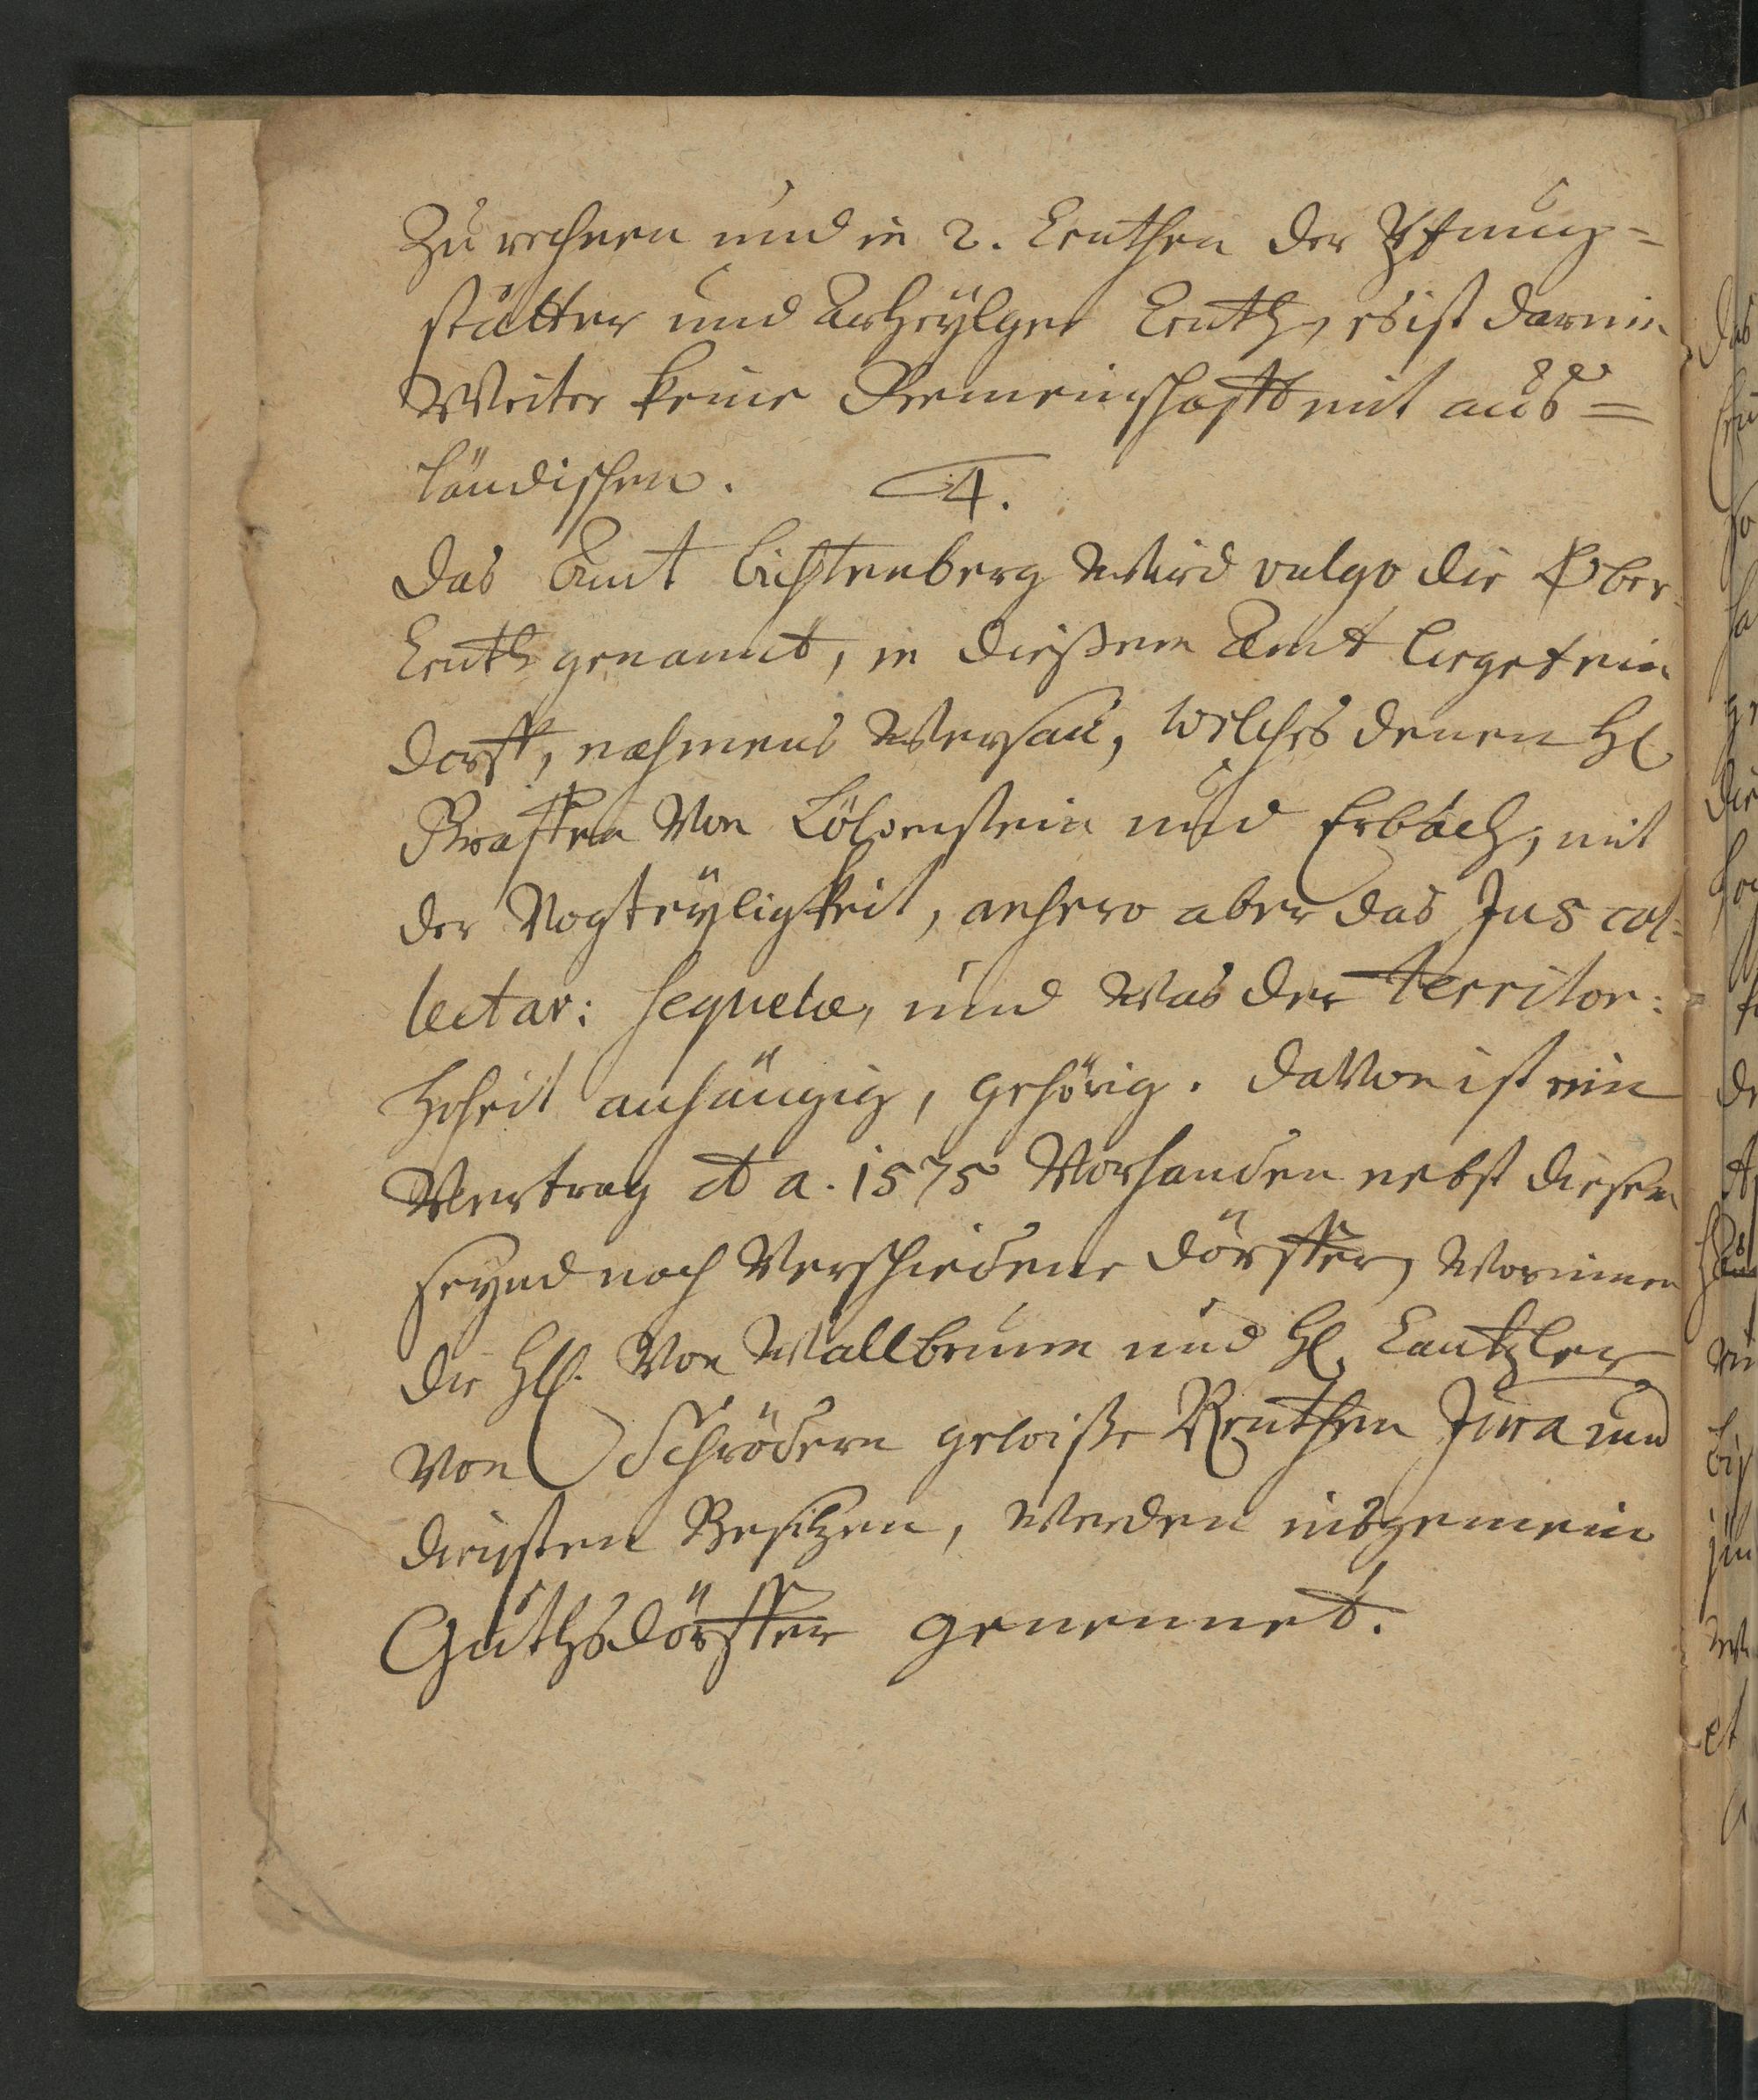 Zu rechnen und in 2. Centhen der Pfung=
stätter und Arheylger Centh, es ist darein
Weiter keine Gemeinschafft mit aus=
ländischen.
4.
Das Amt Lichtenberg Wird vulgo die Ober=
Centh genannt, in dießem Amt lieget ein
dorff, nahmens Wersau, welches denen H.
Graffen Von Löwenstein und Erbach, mit
der Vogteyligkeit, anhero aber das Jus col=
lectar: sequelæ, und Was der territor:
Hoheit anhängig, gehörig. daVon ist ein
Vertrag dt a. 1575 Vorhanden nebst diesem
seynd noch Verschiedene dörffer, Worinnen
die HH. Von Wallbrunn und H. Cantzler
Von Schrödern gewisse Renthen Jura und
diensten Besitzen, Werden insgemein
Guthsdörffer genennet.